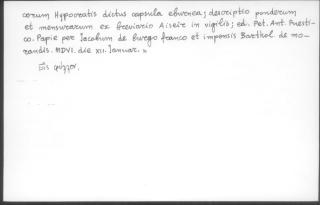 corum Hypocratis dictus capsula eburnea; descriptio ponderum
et mensurarum ex breviario Aiseir in vigiliis; ed. Pet. Ant. Rusti-
co. Papie per Jacobum de burgo franco et impensis Barthol. de mo-
randis. MDVI. die XII. Januar. »